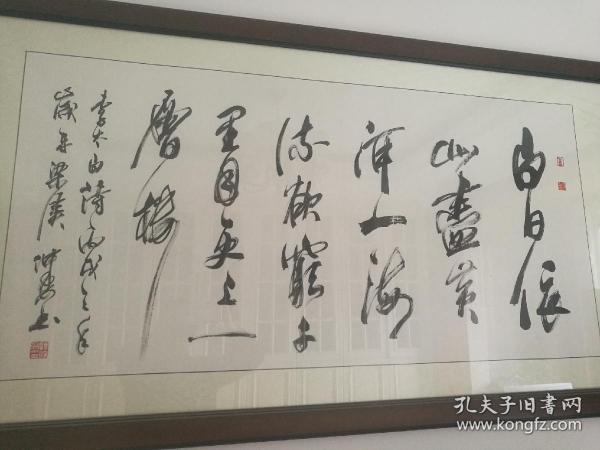 白日依
山盡黄
河入海
流欲窮千
里目更上一
層樓
李太白詩丙戌之年
孔夫子旧書网
www.kongfz.com